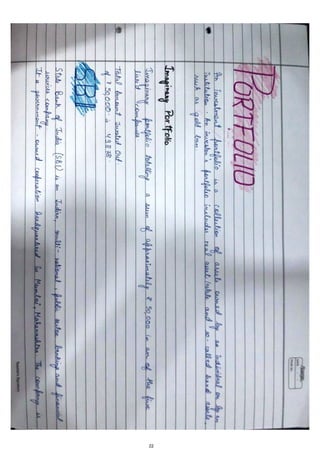 PORTFOLIO
An investment portfolio is a collection of assets owned by an individual or by an
institution. An investor's portfolio includes real asset/estate and so-called hard assets,
such as gold loan
Imaginary Portfolio
Imaginary portfolio totalling a sum of approximately ₹ 50,000 in any of the five
companies
Total Amount Invested Out
of ₹ 50,000 is 49838
SBI
State Bank of India (SBI) is an Indian, multi-national, public sector banking and financial
services company
It is government-owned corporation headquartered in Mumbai, Maharashtra. The company is
22